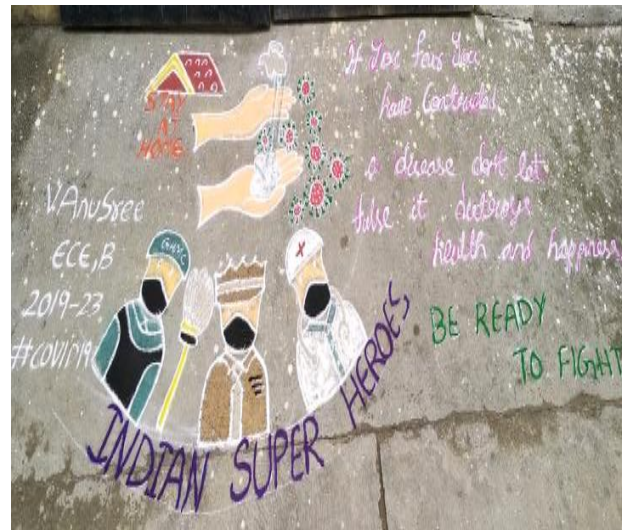 STAY
AT
HOME
If you fear you
have Contracted
a disease don't let
false it destroys
health and happiness
V.AnuSree
ECE,B
2019-23
#COVID19
GHMC
BE READY
TO FIGHT
INDIAN SUPER HEROES